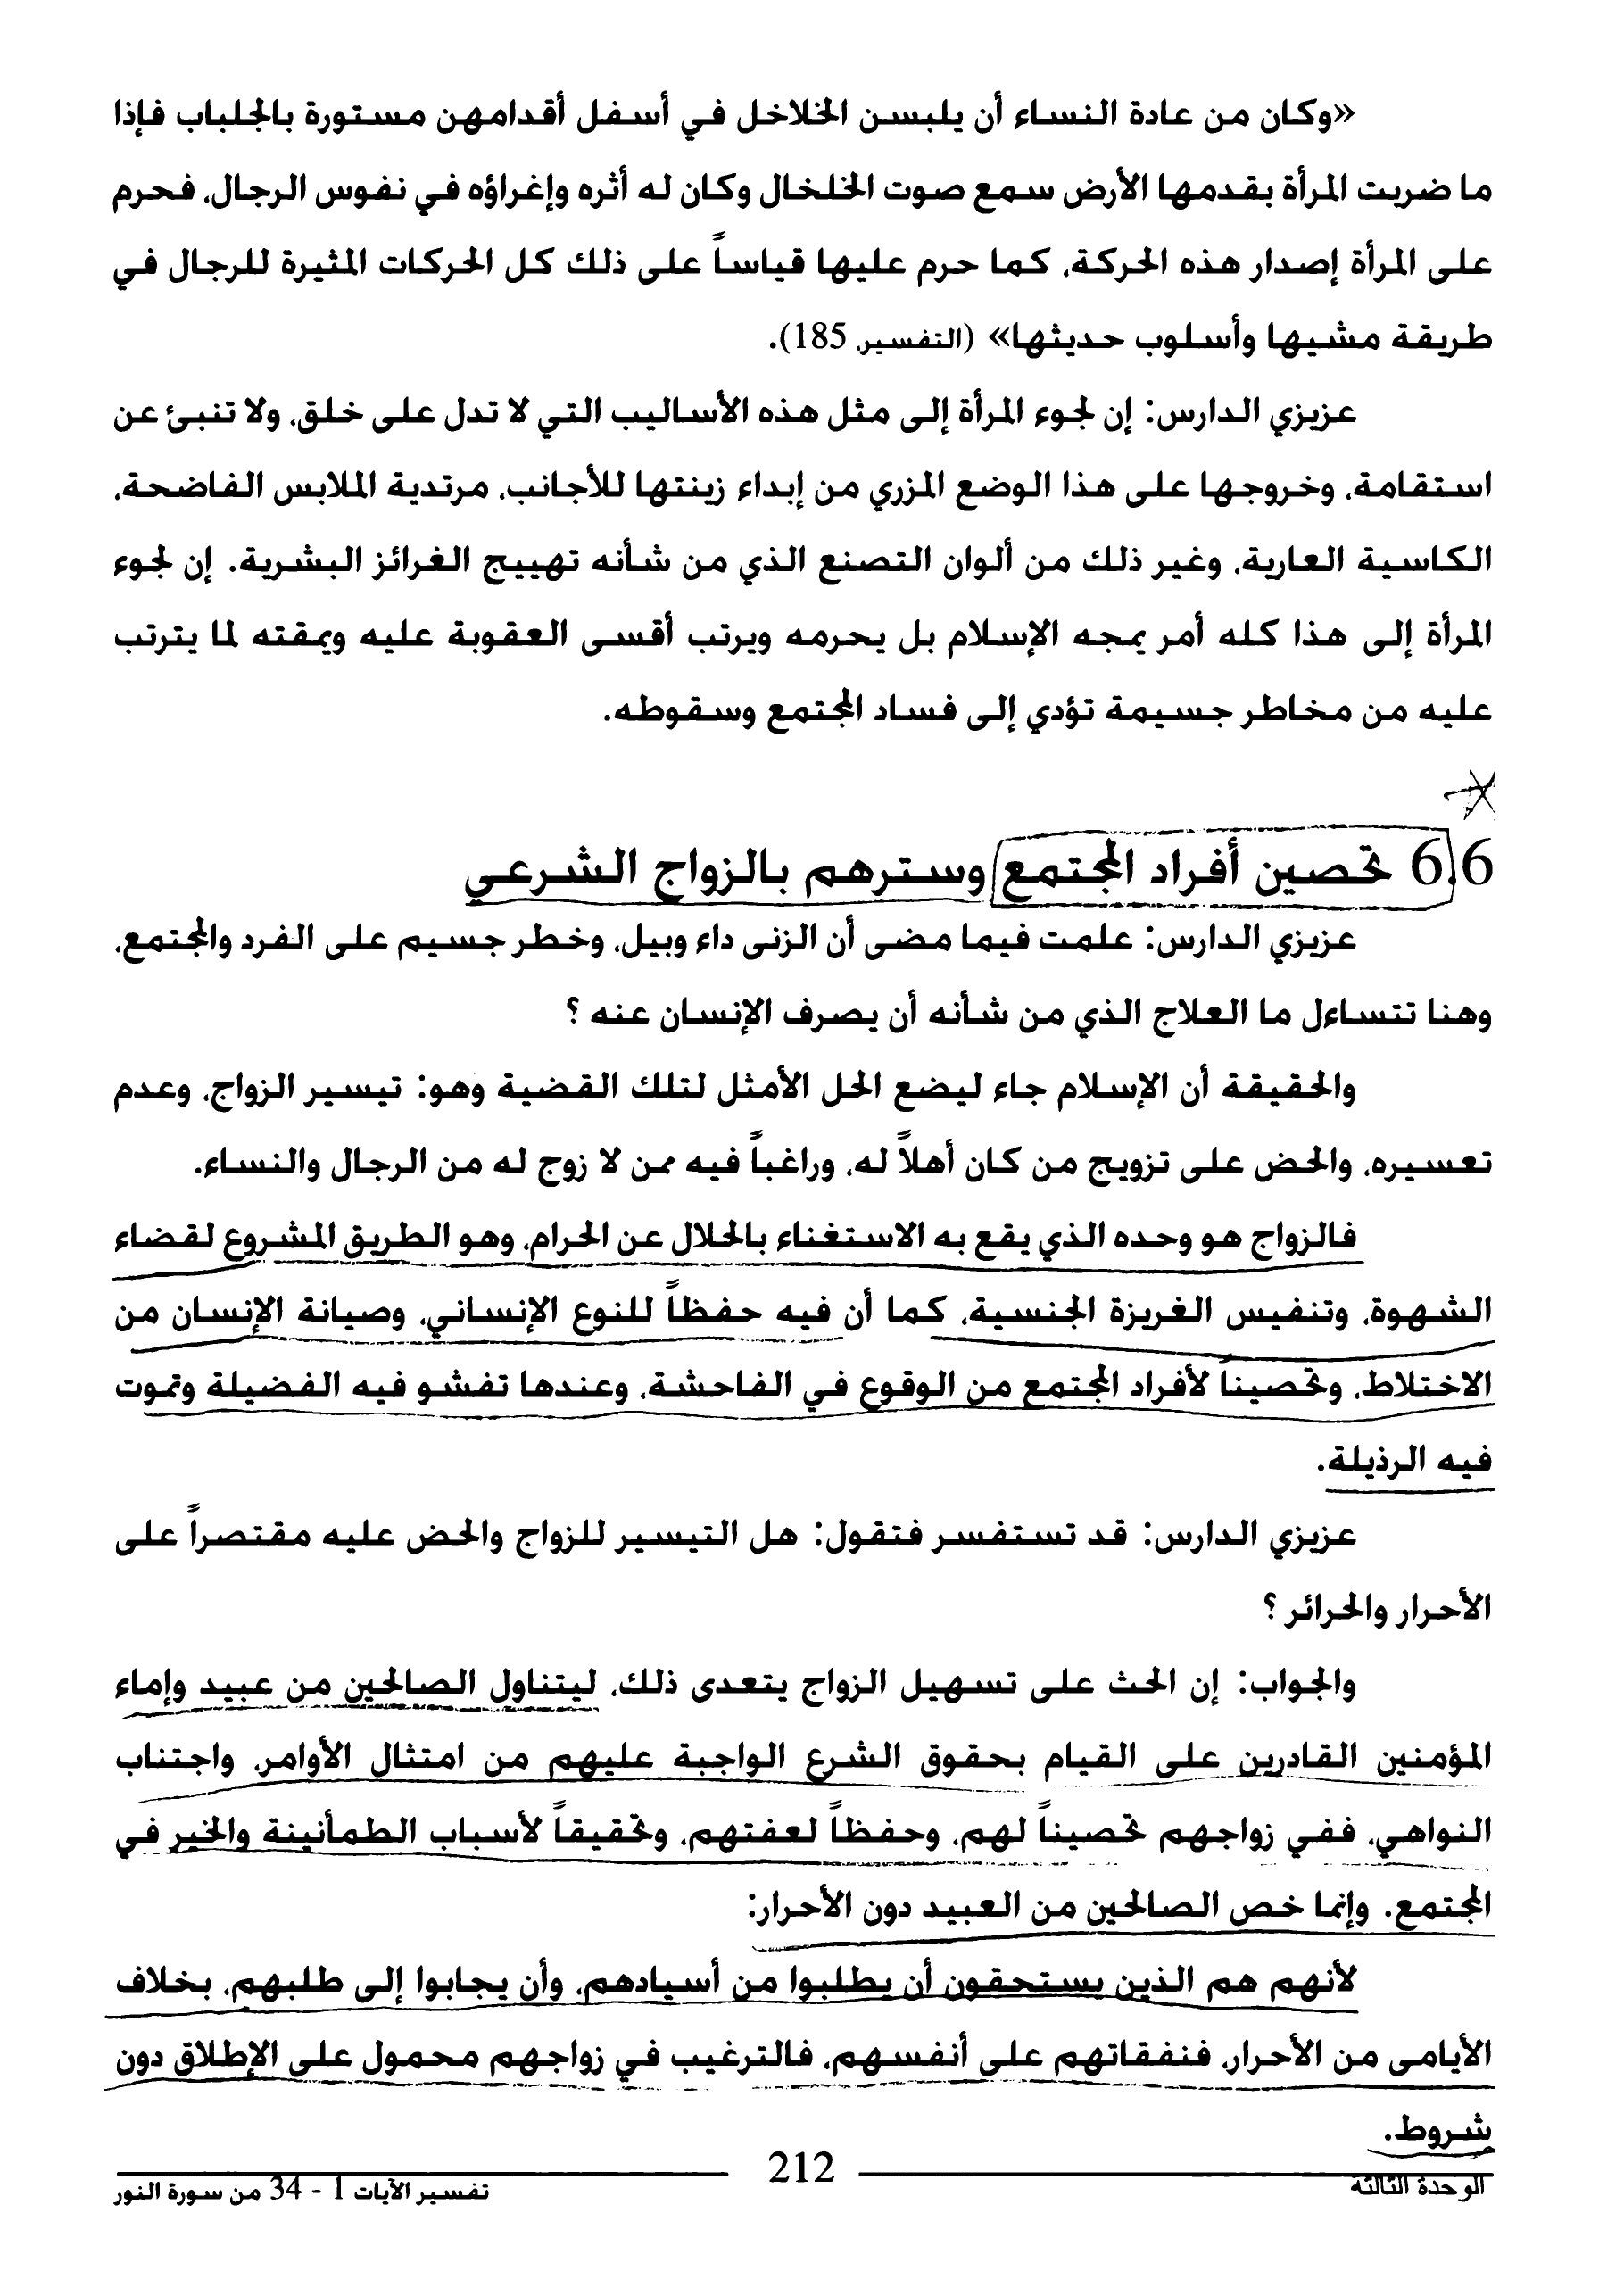 «وكان من عادة النساء أن يلبسن الخلاخل في أسفل أقدامهن مستورة بالجلباب فإذا
ما ضربت المرأة بقدمها الأرض سمع صوت الخلخال وكان له أثره وإغراؤه في نفوس الرجال، فحرم
على المرأة إصدار هذه الحركة، كما حرم عليها قياساً على ذلك كل الحركات المثيرة للرجال في
طريقة مشيها وأسلوب حديثها» (التفسير، 185).
عزيزي الدارس: إن لجوء المرأة إلى مثل هذه الأساليب التي لا تدل على خلق، ولا تنبئ عن
استقامة، وخروجها على هذا الوضع المزري من إبداء زينتها للأجانب، مرتدية الملابس الفاضحة،
الكاسية العارية، وغير ذلك من ألوان التصنع الذي من شأنه تهييج الغرائز البشرية. إن لجوء
المرأة إلى هذا كله أمر يمجه الإسلام بل يحرمه ويرتب أقسى العقوبة عليه ويمقته لما يترتب
عليه من مخاطر جسيمة تؤدي إلى فساد المجتمع وسقوطه.
6.6 تحصين أفراد المجتمع وسترهم بالزواج الشرعي
عزيزي الدارس: علمت فيما مضى أن الزنى داء وبيل، وخطر جسيم على الفرد والمجتمع،
وهنا تتساءل ما العلاج الذي من شأنه أن يصرف الإنسان عنه ؟
والحقيقة أن الإسلام جاء ليضع الحل الأمثل لتلك القضية وهو: تيسير الزواج، وعدم
تعسيره، والحض على تزويج من كان أهلاً له، وراغباً فيه ممن لا زوج له من الرجال والنساء.
فالزواج هو وحده الذي يقع به الاستغناء بالحلال عن الحرام، وهو الطريق المشروع لقضاء
الشهوة، وتنفيس الغريزة الجنسية، كما أن فيه حفظاً للنوع الإنساني، وصيانة الإنسان من
الاختلاط، وتحصيناً لأفراد المجتمع من الوقوع في الفاحشة، وعندها تفشو فيه الفضيلة وتموت
فيه الرذيلة.
عزيزي الدارس: قد تستفسر فتقول: هل التيسير للزواج والحض عليه مقتصراً على
الأحرار والحرائر ؟
والجواب: إن الحث على تسهيل الزواج يتعدى ذلك، ليتناول الصالحين من عبيد وإماء
المؤمنين القادرين على القيام بحقوق الشرع الواجبة عليهم من امتثال الأوامر، واجتناب
النواهي، ففي زواجهم تحصيناً لهم، وحفظاً لعفتهم، وتحقيقاً لأسباب الطمأنينة والخير في
المجتمع. وإنما خص الصالحين من العبيد دون الأحرار:
لأنهم هم الذين يستحقون أن يطلبوا من أسيادهم، وأن يجابوا إلى طلبهم، بخلاف
الأيامى من الأحرار، فنفقاتهم على أنفسهم، فالترغيب في زواجهم محمول على الإطلاق دون
شروط.
الوحدة الثالثة 212 تفسير الآيات 1 - 34 من سورة النور